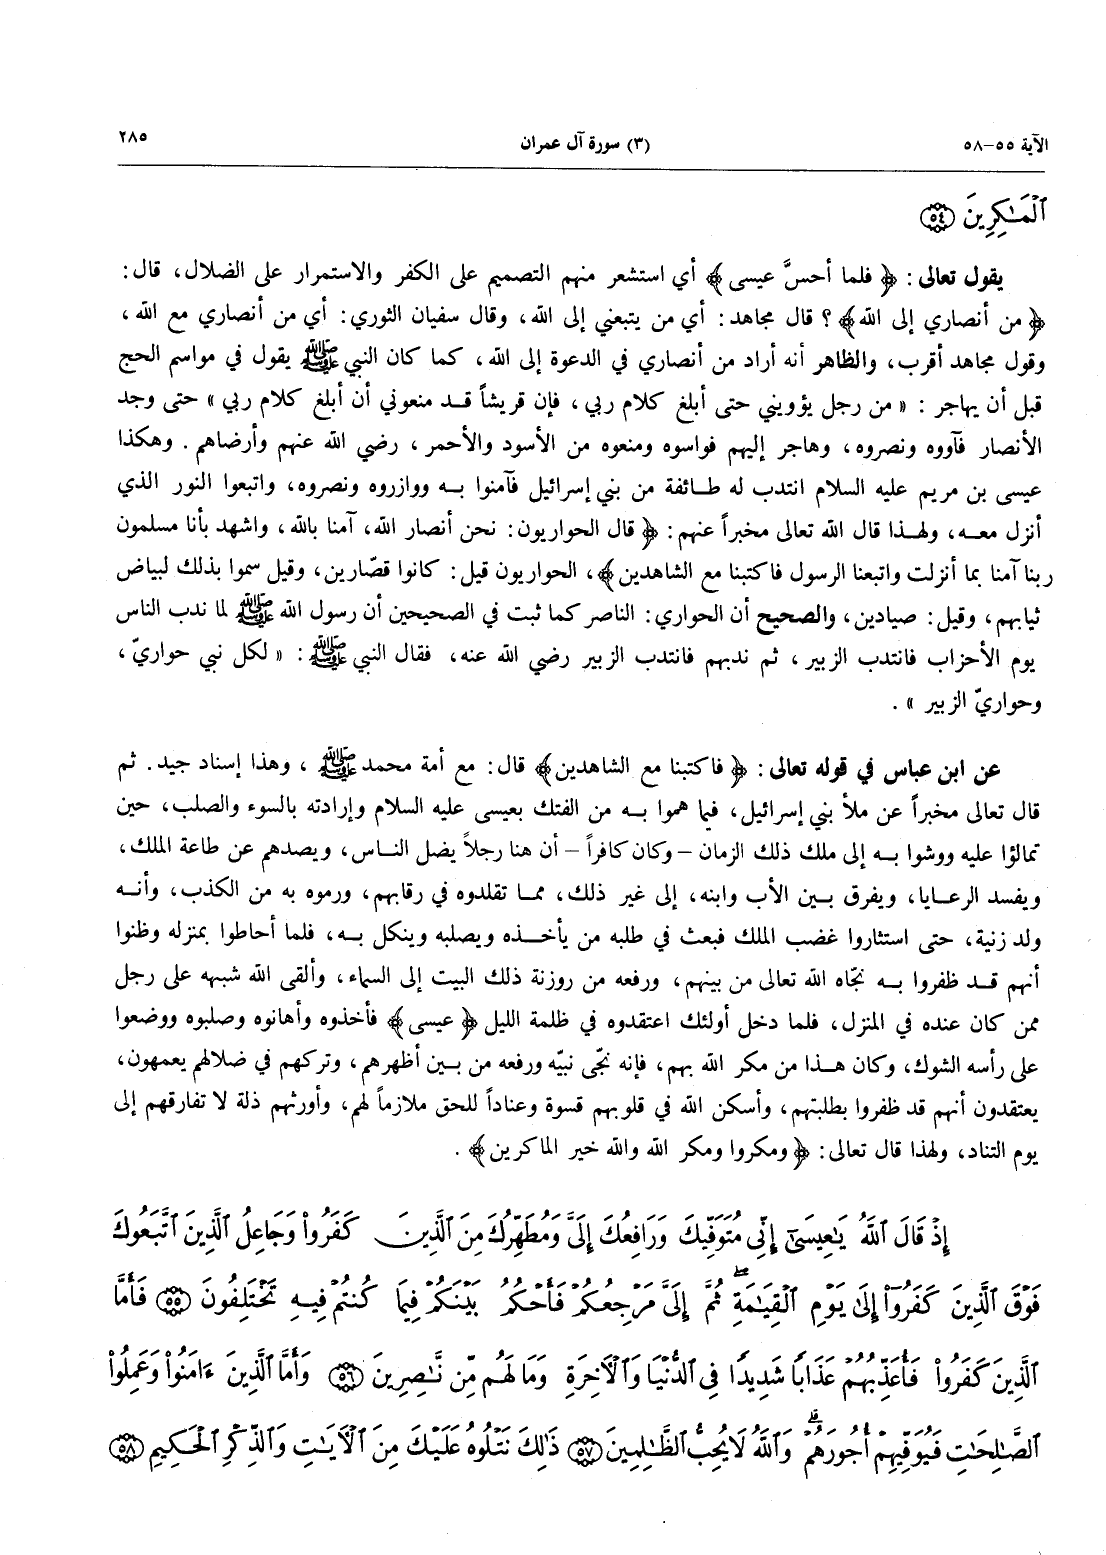 الآية ٥٥-٥٨ (٣) سورة آل عمران ٢٨٥
ٱلْمَٰكِرِينَ ٥٤
يقول تعالى : ﴿ فلما أحسَّ عيسى ﴾ أي استشعر منهم التصميم على الكفر والاستمرار على الضلال ، قال :
﴿ من أنصاري إلى الله ﴾ ؟ قال مجاهد : أي من يتبعني إلى الله ، وقال سفيان الثوري : أي من أنصاري مع الله ،
وقول مجاهد أقرب ، والظاهر أنه أراد من أنصاري في الدعوة إلى الله ، كما كان النبي ﷺ يقول في مواسم الحج
قبل أن يهاجر : « من رجل يؤويني حتى أبلغ كلام ربي ، فإن قريشاً قد منعوني أن أبلغ كلام ربي » حتى وجد
الأنصار فآووه ونصروه ، وهاجر إليهم فواسوه ومنعوه من الأسود والأحمر ، رضي الله عنهم وأرضاهم . وهكذا
عيسى بن مريم عليه السلام انتدب له طائفة من بني إسرائيل فآمنوا به ووازروه ونصروه ، واتبعوا النور الذي
أنزل معه ، ولهذا قال الله تعالى مخبراً عنهم : ﴿ قال الحواريون : نحن أنصار الله ، آمنا بالله ، واشهد بأنا مسلمون
ربنا آمنا بما أنزلت واتبعنا الرسول فاكتبنا مع الشاهدين ﴾ ، الحواريون قيل : كانوا قصّارين ، وقيل سموا بذلك لبياض
ثيابهم ، وقيل : صيادين ، والصحيح أن الحواري : الناصر كما ثبت في الصحيحين أن رسول الله ﷺ لما ندب الناس
يوم الأحزاب فانتدب الزبير ، ثم ندبهم فانتدب الزبير رضي الله عنه ، فقال النبي ﷺ : « لكل نبي حواريّ ،
وحواريّ الزبير » .
عن ابن عباس في قوله تعالى : ﴿ فاكتبنا مع الشاهدين ﴾ قال : مع أمة محمد ﷺ ، وهذا إسناد جيد . ثم
قال تعالى مخبراً عن ملأ بني إسرائيل ، فيما هموا به من الفتك بعيسى عليه السلام وإرادته بالسوء والصلب ، حين
تمالؤا عليه ووشوا به إلى ملك ذلك الزمان – وكان كافراً – أن هنا رجلاً يضل الناس ، ويصدهم عن طاعة الملك ،
ويفسد الرعايا ، ويفرق بين الأب وابنه ، إلى غير ذلك ، مما تقلدوه في رقابهم ، ورموه به من الكذب ، وأنه
ولد زنية ، حتى استثاروا غضب الملك فبعث في طلبه من يأخذه ويصلبه وينكل به ، فلما أحاطوا بمنزله وظنوا
أنهم قد ظفروا به نجّاه الله تعالى من بينهم ، ورفعه من روزنة ذلك البيت إلى السماء ، وألقى الله شبهه على رجل
ممن كان عنده في المنزل ، فلما دخل أولئك اعتقدوه في ظلمة الليل ﴿ عيسى ﴾ فأخذوه وأهانوه وصلبوه ووضعوا
على رأسه الشوك ، وكان هذا من مكر الله بهم ، فإنه نجّى نبيّه ورفعه من بين أظهرهم ، وتركهم في ضلالهم يعمهون ،
يعتقدون أنهم قد ظفروا بطلبتهم ، وأسكن الله في قلوبهم قسوة وعناداً للحق ملازماً لهم ، وأورثهم ذلة لا تفارقهم إلى
يوم التناد ، ولهذا قال تعالى : ﴿ ومكروا ومكر الله والله خير الماكرين ﴾ .
إِذْ قَالَ ٱللَّهُ يَٰعِيسَىٰٓ إِنِّى مُتَوَفِّيكَ وَرَافِعُكَ إِلَىَّ وَمُطَهِّرُكَ مِنَ ٱلَّذِينَ كَفَرُوا۟ وَجَاعِلُ ٱلَّذِينَ ٱتَّبَعُوكَ
فَوْقَ ٱلَّذِينَ كَفَرُوٓا۟ إِلَىٰ يَوْمِ ٱلْقِيَٰمَةِ ۖ ثُمَّ إِلَىَّ مَرْجِعُكُمْ فَأَحْكُمُ بَيْنَكُمْ فِيمَا كُنتُمْ فِيهِ تَخْتَلِفُونَ ٥٥ فَأَمَّا
ٱلَّذِينَ كَفَرُوا۟ فَأُعَذِّبُهُمْ عَذَابًا شَدِيدًا فِى ٱلدُّنْيَا وَٱلْءَاخِرَةِ وَمَا لَهُم مِّن نَّٰصِرِينَ ٥٦ وَأَمَّا ٱلَّذِينَ ءَامَنُوا۟ وَعَمِلُوا۟
ٱلصَّٰلِحَٰتِ فَيُوَفِّيهِمْ أُجُورَهُمْ ۗ وَٱللَّهُ لَا يُحِبُّ ٱلظَّٰلِمِينَ ٥٧ ذَٰلِكَ نَتْلُوهُ عَلَيْكَ مِنَ ٱلْءَايَٰتِ وَٱلذِّكْرِ ٱلْحَكِيمِ ٥٨